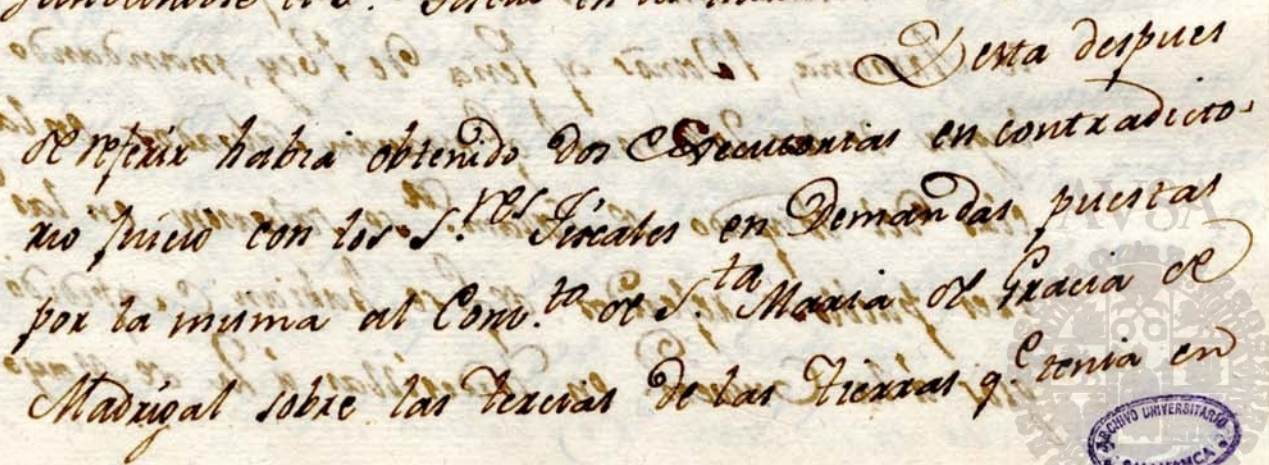 Y esta despues
de referir habia obtenido dos Executorias en contradicto-
rio Juicio con los S.res Fiscales en Demandas puestas
por la misma al Conv.to de S.ta Maria de Gracia de
Madrigal sobre las tercias de las tierras q.e tenia en
AVSA
ARCHIVO UNIVERSITARIO
SALAMANCA